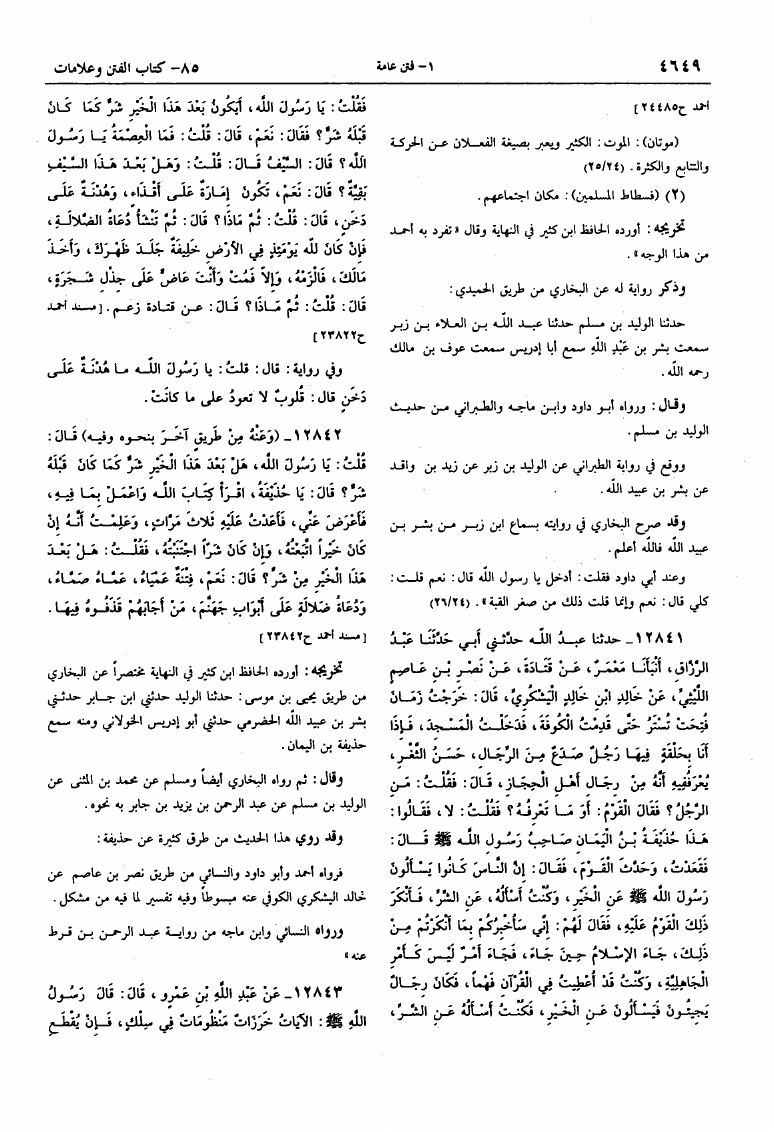 ٤٦٤٩
١- فتن عامة
٨٥- كتاب الفتن وعلامات
أحمد ح٢٤٤٨٥]
(موتان): الموت: الكثير ويعبر بصيغة الفعـلان عـن الحركة
والتتابع والكثرة. (٢٥/٢٤)
(٢) (فسطاط المسلمين): مكان اجتماعهم.
تخريجه: أورده الحافظ ابن كثير في النهاية وقال «تفرد به أحمد
من هذا الوجه».
وذكر رواية له عن البخاري من طريق الحميدي:
حدثنا الوليد بن مسلم حدثنا عبـد اللـه بـن العـلاء بـن زبـر
سمعت بشر بن عَبْدِ اللَّهِ سمع أبا إدريس سمعت عوف بن مالك
رحمه الله.
وقـال: ورواه أبـو داود وابـن ماجـه والطبـراني مـن حديـث
الوليد بن مسلم.
ووقع في رواية الطبراني عن الوليد بن زبر عن زيد بن واقد
عن بشر بن عبيد الله.
وقد صرح البخاري في روايته بسماع ابن زبـر مـن بشـر بـن
عبيد الله فالله أعلم.
وعند أبي داود فقلت: أدخل يا رسول الله قال: نعم قلـت:
كلي قال: نعم وإنما قلت ذلك من صغر القبة». (٢٦/٢٤)
١٢٨٤١- حدثنا عبـدُ اللـه حدثـني أبـي حَدَّثَنَـا عَبْـدُ
الرَّزَّاقِ، أَنْبَأَنَـا مَعْمَـرٌ، عَـنْ قَتَـادَةَ، عَـنْ نَصْـرِ بْـنِ عَـاصِمٍ
اللَّيْثِيِّ، عَنْ خَالِدِ ابْنِ خَالِدٍ الْيَشْكُرِيِّ، قَالَ: خَرَجْتُ زَمَـانَ
فُتِحَتْ تُسْتَرُ حَتَّى قَدِمْتُ الْكُوفَةَ، فَدَخَلْـتُ الْمَسْـجِدَ، فَـإِذَا
أَنَا بِحَلْقَةٍ فِيهَـا رَجُـلٌ صَـدَعٌ مِـنَ الرِّجَـالِ، حَسَـنُ الثَّغْـرِ،
يُعْرَفُفِيهِ أَنَّهُ مِنْ رِجَالِ أَهْـلِ الْحِجَـازِ، قَـالَ: فَقُلْـتُ: مَـنِ
الرَّجُلُ؟ فَقَالَ الْقَوْمُ: أَوَ مَـا تَعْرِفُـهُ؟ فَقُلْـتُ: لا، فَقَـالُوا:
هَـذَا حُذَيْفَةُ بْـنُ الْيَمَـانِ صَـاحِبُ رَسُـولِ اللـه ﷺ قَــالَ:
فَقَعَدْتُ، وَحَدَّثَ الْقَـوْمَ، فَقَـالَ: إِنَّ النَّـاسَ كَـانُوا يَسْـأَلُونَ
رَسُولَ الله ﷺ عَنِ الْخَيْرِ، وَكُنْـتُ أَسْـأَلُهُ، عَنِ الشَّـرِّ، فَـأَنْكَرَ
ذَلِكَ الْقَوْمُ عَلَيْهِ، فَقَالَ لَهُمْ: إِنِّي سَأُخْبِرُكُمْ بِمَا أَنْكَرْتُمْ مِـنْ
ذَلِـكَ، جَـاءَ الإِسْـلامُ حِيـنَ جَـاءَ، فَجَـاءَ أَمْـرٌ لَيْـسَ كَـأَمْرِ
الْجَاهِلِيَّةِ، وَكُنْتُ قَدْ أُعْطِيتُ فِي الْقُرْآنِ فَهْماً، فَكَانَ رِجَـالٌ
يَجِيئُـونَ فَيَسْـأَلُونَ عَـنِ الْخَـيْرِ، فَكُنْـتُ أَسْـأَلُهُ عَـنِ الشَّـرِّ،
فَقُلْتُ: يَا رَسُولَ الله، أَيَكُونُ بَعْدَ هَذَا الْخَيْرِ شَرٌّ كَمَا كَـانَ
قَبْلَهُ شَرٌّ؟ فَقَالَ: نَعَمْ، قَالَ: قُلْتُ: فَمَا الْعِصْمَةُ يَـا رَسُـولَ
اللَّه؟ قَالَ: السَّيْفُ قَـالَ: قُلْـتُ: وَهَـلْ بَعْـدَ هَـذَا السَّـيْفِ
بَقِيَّةٌ؟ قَالَ: نَعَمْ، تَكُونُ إِمَـارَةٌ عَلَـى أَقْـذَاءٍ، وَهُدْنَـةٌ عَلَـى
دَخَنٍ، قَالَ: قُلْتُ: ثُمَّ مَاذَا؟ قَالَ: ثُمَّ تَنْشَأُ دُعَاةُ الضَّلالَـةِ،
فَإِنْ كَانَ لله يَوْمَئِذٍ فِي الأَرْضِ خَلِيفَةٌ جَلَـدَ ظَهْـرَكَ، وَأَخَـذَ
مَالَكَ، فَالْزَمْهُ، وَإِلاَّ فَمُتْ وَأَنْتَ عَاضٌّ عَلَى جِذْلِ شَـجَرَةٍ،
قَالَ: قُلْتُ: ثُمَّ مَـاذَا؟ قَـالَ: عـن قتـادة زعـم. [مسـند أحمـد
ح٢٣٨٢٢]
وفي رواية: قال: قلتُ: يا رَسُولَ اللـه مـا هُدْنَـةٌ عَلَـى
دَخَنٍ قال: قُلوبٌ لا تعودُ على ما كانَتْ.
١٢٨٤٢- (وَعَنْهُ مِنْ طَرِيقٍ آخَـرَ بنحـوه وفيـه) قَـالَ:
قُلْتُ: يَا رَسُولَ الله، هَلْ بَعْدَ هَذَا الْخَيْرِ شَرٌّ كَمَا كَانَ قَبْلَهُ
شَرٌّ؟ قَالَ: يَا حُذَيْفَةُ، اقْـرَأْ كِتَـابَ اللـه وَاعْمَـلْ بِمَـا فِيـهِ،
فَأَعْرَضَ عَنِّي، فَأَعَدْتُ عَلَيْهِ ثَلاثَ مَرَّاتٍ، وَعَلِمْـتُ أَنَّـهُ إِنْ
كَانَ خَيْراً اتَّبَعْتُهُ، وَإِنْ كَانَ شَرّاً اجْتَنَبْتُهُ، فَقُلْـتُ: هَـلْ بَعْـدَ
هَذَا الْخَيْرِ مِنْ شَرٍّ؟ قَالَ: نَعَمْ، فِتْنَةٌ عَمْيَاءُ، عَمَّـاءُ صَمَّـاءُ،
وَدُعَاةُ ضَلالَةٍ عَلَى أَبْوَابِ جَهَنَّمَ، مَنْ أَجَابَهُمْ قَذَفُـوهُ فِيهَـا.
[مسند أحمد ح٢٣٨٤٢]
تخريجه: أورده الحافظ ابن كثير في النهاية مختصراً عن البخاري
من طريق يحيى بن موسى: حدثنا الوليد حدثني ابن جـابر حدثـني
بشر بن عبيد الله الحضرمي حدثني أبو إدريس الخولاني ومنه سمع
حذيفة بن اليمان.
وقال: ثم رواه البخاري أيضاً ومسلم عن محمد بن المثنى عن
الوليد بن مسلم عن عبد الرحمن بن يزيد بن جابر به نحوه.
وقد روي هذا الحديث من طرق كثيرة عن حذيفة:
فرواه أحمد وأبو داود والنسائي من طريق نصر بن عاصم عن
خالد اليشكري الكوفي عنه مبسوطاً وفيه تفسير لما فيه من مشكل.
ورواه النسائي وابن ماجه من روايـة عبـد الرحمـن بـن قـرط
عنه»
١٢٨٤٣- عَنْ عَبْدِ اللَّهِ بْنِ عَمْرٍو، قَالَ: قَالَ رَسُولُ
اللَّهِ ﷺ: الآيَاتُ خَرَزَاتٌ مَنْظُومَاتٌ فِي سِلْكٍ، فَـإِنْ يُقْطَـعِ